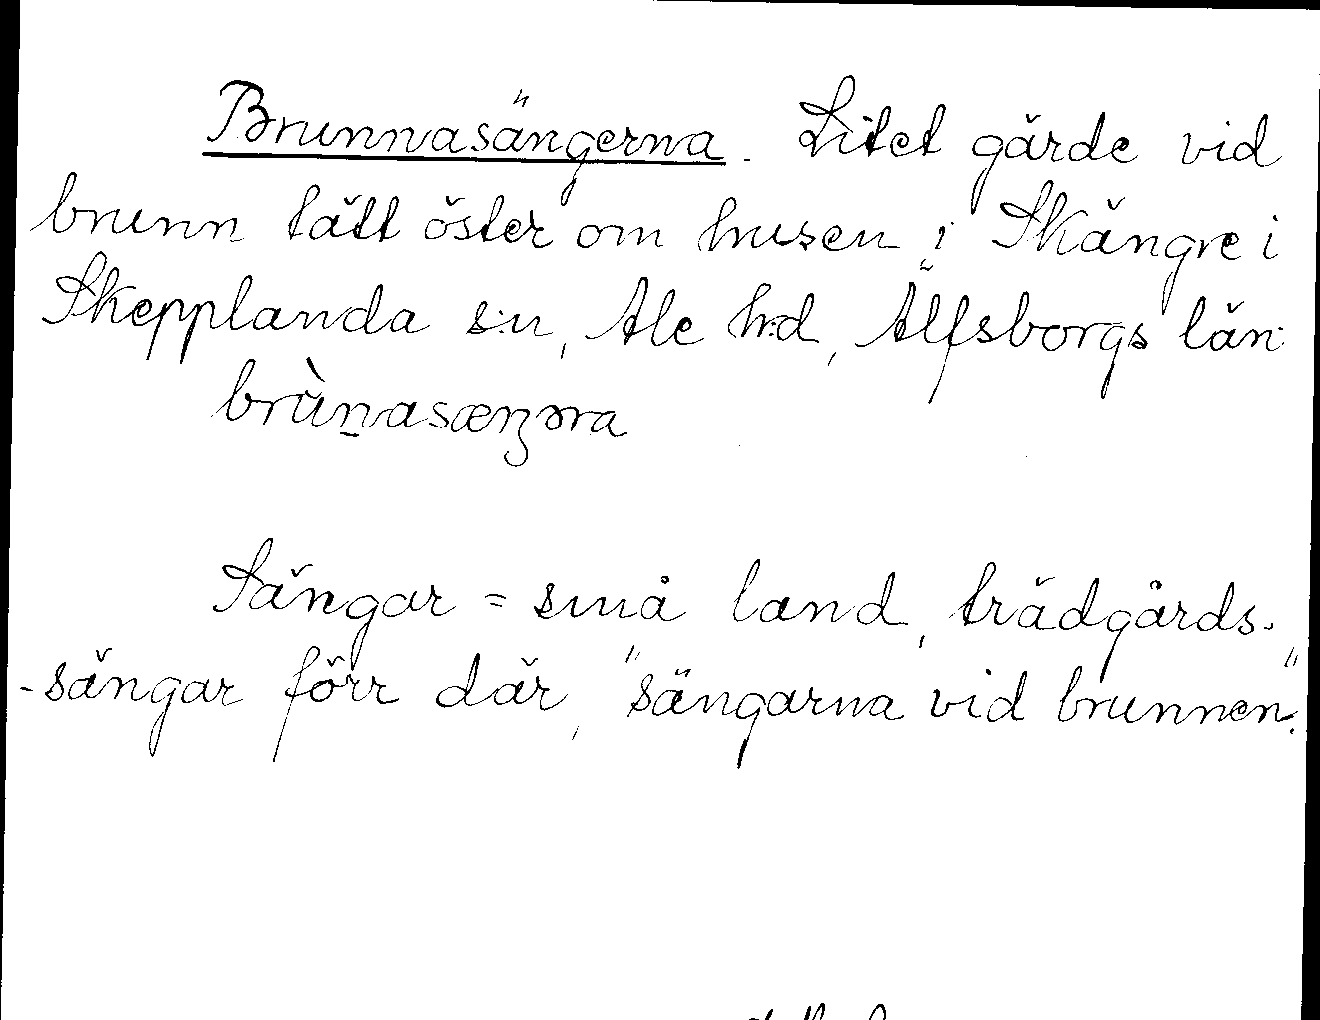 Brunnasängerna. Litet gärde vid
brunn tätt öster om husen i Skängre i
Skepplanda s:n, Ale h:d, Älfsborgs län:
brùn̠asæŋəra
Sängar = små land, trädgårds-
-sängar förr där, "sängarna vid brunnen."